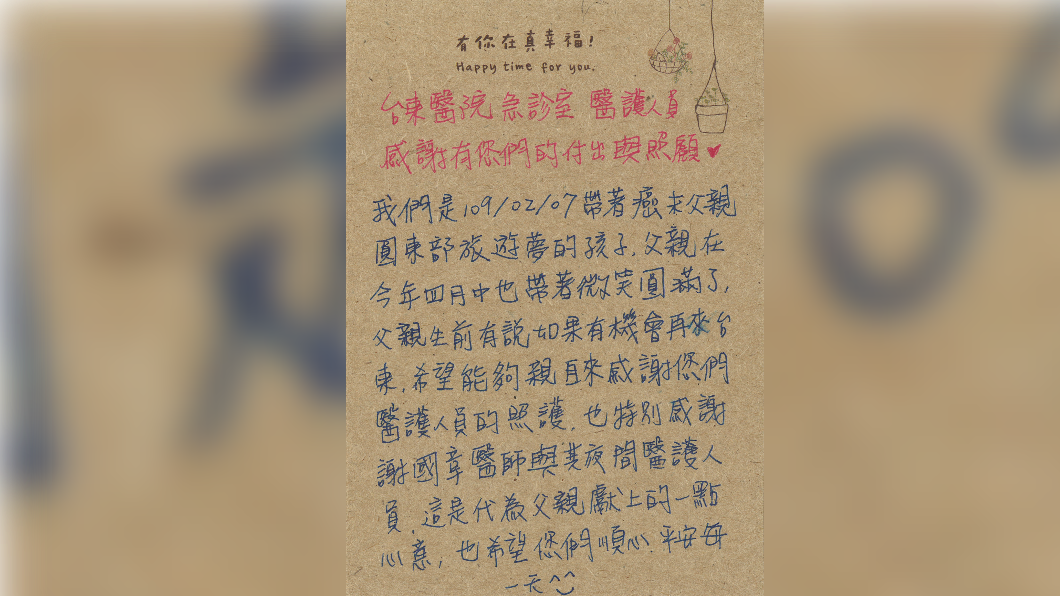 有你在真幸福!
Happy time for you.
台東醫院 急診室 醫護人員
感謝有您們的付出與照顧♥
我們是109/02/07帶著癌末父親
圓東部旅遊夢的孩子,父親在
今年四月中也帶著微笑圓滿了,
父親生前有說如果有機會再來台
東,希望能夠親自來感謝您們
醫護人員的照護,也特別感謝
謝國章醫師與其夜間醫護人
員,這是代為父親獻上的一點
心意,也希望您們順心.平安每
一天^^